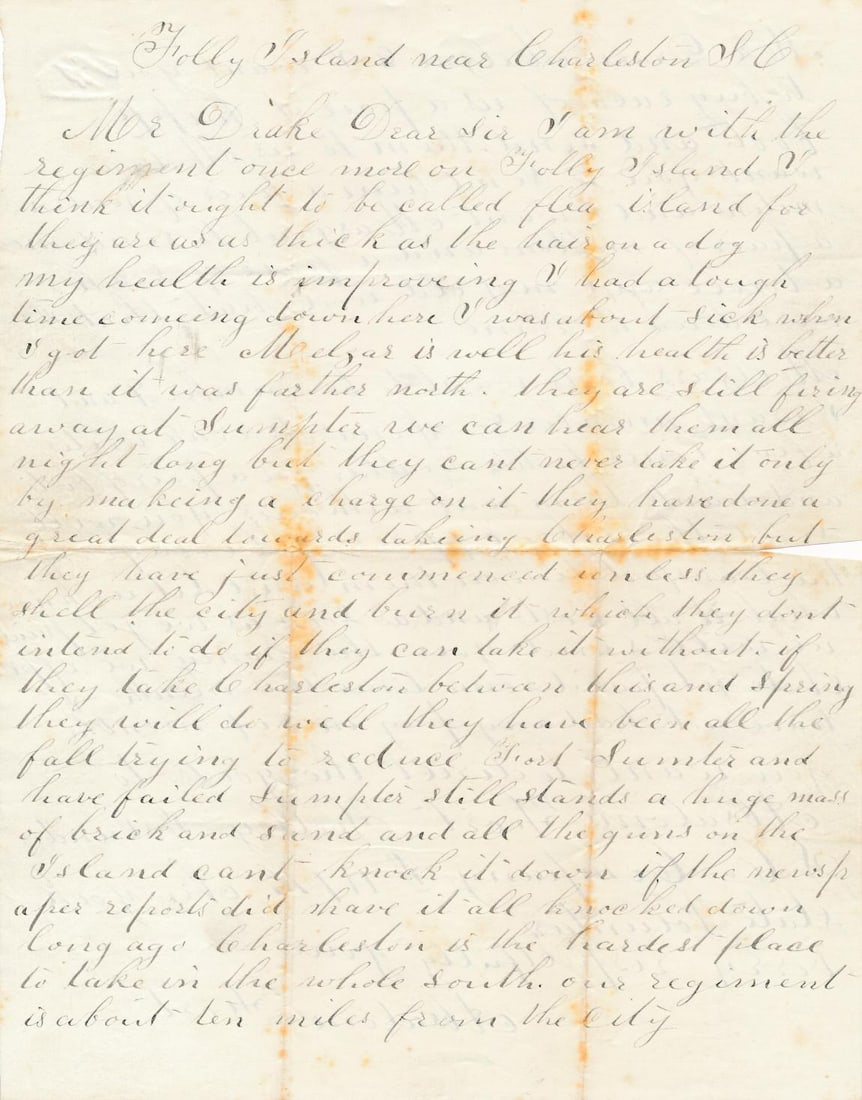 Folly Island near Charleston S C
Mr Drake Dear Sir I am with the
regiment once more on Folly Island I
think it ought to be called flea island for
they are as thick as the hair on a dog
my health is improveing I had a tough
time comeing down here I was about sick when
I got here Melzar is well his health is better
than it was farther north. they are still firing
away at Sumpter we can hear them all
night long but they cant never take it only
by makeing a charge on it they have done a
great deal towards takeing Charleston but
they have just commenced unless they
shell the city and burn it which they dont
intend to do if they can take it without. if
they take Charleston between this and Spring
they will do well they have been all the
fall trying to reduce Fort Sumter and
have failed Sumpter still stands a huge mass
of brick and sand and all the guns on the
Island cant knock it down if the newsp
aper reports did shave it all knocked down
long ago Charleston is the hardest place
to take in the whole south. our regiment
is about ten miles from the city